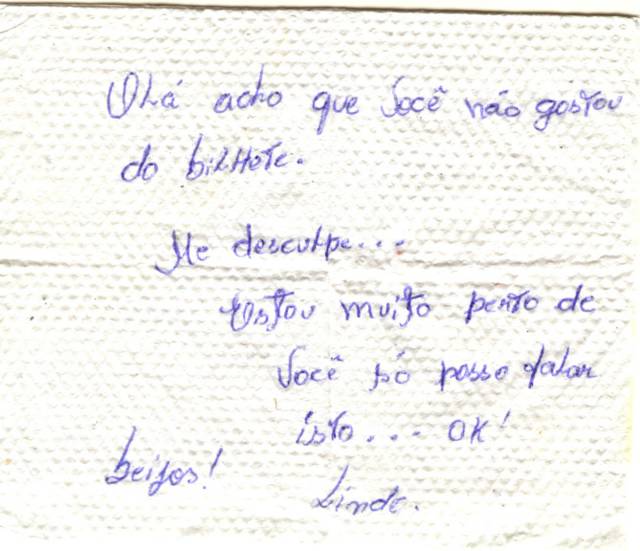 Olá acho que você não gostou
do bilhete.
Me desculpe...
Estou muito perto de
você só posso falar
isto... OK!
beijos!
Linde.